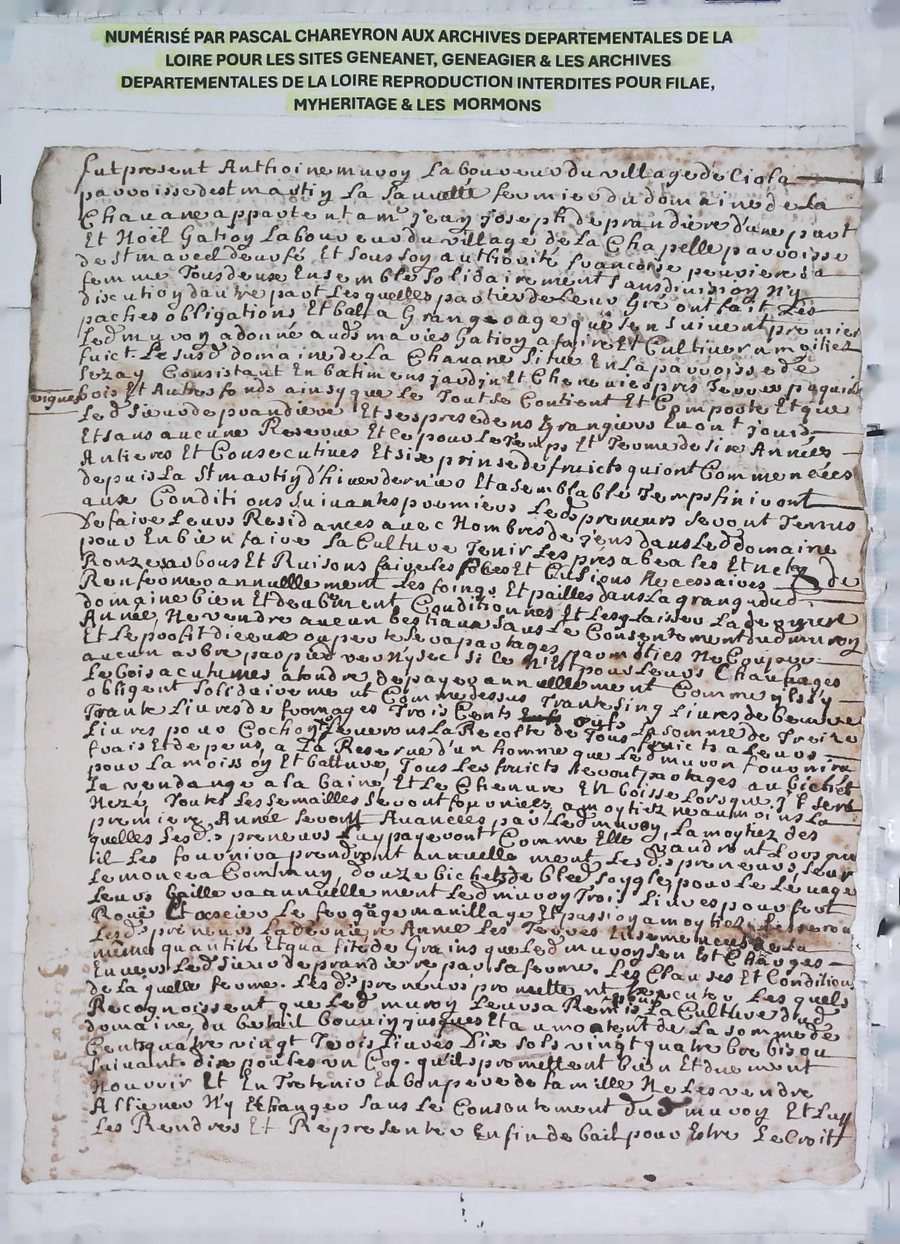 NUMÉRISÉ PAR PASCAL CHAREYRON AUX ARCHIVES DEPARTEMENTALES DE LA
LOIRE POUR LES SITES GENEANET, GENEAGIER & LES ARCHIVES
DEPARTEMENTALES DE LA LOIRE REPRODUCTION INTERDITES POUR FILAE,
MYHERITAGE & LES MORMONS
fut present Anthoine muron Laboureur du village de Ciola
parroisse de st martin La Sauveté fermier du domaine de La
Chavane appartent a mr jean joseph de prandiere d'une part
Et Noël Gation Laboureur du village de La Chapelle parroisse
de st marcel deurfé Et sous son authorité francoise peuriere sa
femme Tous deux Ensemble solidairement sans division ny
discution d'autre part Lesquelles parties de Leur Gré ont fait Les
paches obligations Et bail a Grangeage que sen suivent premier
Led muron a donné aud maries Gation a faire Et Cultiver a moitiez
fuict Le susd domaine de La Chavane situé En La parroisse de
Sezay Consistant En batimens jardin Et Cheneviers pres Terres paquis
vignes
bois Et Autres fonds ainsy que Le Tout se Contient Et Comporte Et que
Led Sieur de prandiere Et ses precedens Grangiers En ont jouis
Et sans aucune Reserve Et Ce pour Le Temps Et Terme de sixe Années
Antieres Et Consecutives Et six prinse de fruicts qui ont Commencées
depuis La st martin d'hiver dernier Et a semblable Temps finiront
aux Conditions suivantes premiers Lesd preneurs seront Tenus
de faire Leurs Residances avec Nombres de Gens dans Led domaine
pour En bien faire La Culture Tenir Les prés abeales Et nets
Ronzes arbous Et Buisons faire Les fosses Et Cusions Necessaires
Renfermer annuellement Les foings Et pailles dans La grange dud
domaine bien Et deubment Conditionnes Et Les y Laisser La derniere
Année, Ne vendre aucun bestiaux sans Le Consentement dud muron
Et Le profit diceux ou perte sera partagés par moities Ne Couper
aucun arbre par pied vert ny sec si ce n'Est pour Leurs Chaufages
Le bois acutumes a tondre de payer annuellement Comme ils sy
obligent solidairement Comme dessus Trante sing Livres de beurre
Trante Livres de fromages Trois Cents oeufs La somme de Treize
Livres pour Cochon Leverons La Recolte de Tous fruicts a Leurs
frais Et depens, a La Reserve d'un homme que Led muron fournira
pour La moisson Et batture, Tous Les fruicts seront partages au bichet
La vendange a La baine, Et Le Chenure En boisse Lorsque jl sera
Nezé Toutes Les semailles seront fournies a moytiez neaumoins La
premiere Année seront Avancées par Led muron, La moytiez des
quelles Lesd preneurs Luy payeront Comme Elle vaudront Lors qu
il Les fournira prendront annuellement Lesd preneurs, sur
Le moncea Commun, douze bichets de bled soygle, pour Le Levage
Leurs baillera annuellement Led muron Trois Livres pour fert
Rouë Et ascier Le forgage manillage Et passion a moytiez
Lesd preneurs La derniere Année Les Terres Ensemencées de La
même quantité Et qualité de Grains que Led muron s'en Est Charges
Envers Led Sieur de prandiere par sa ferme. Les Clauses Et Conditions
de La quelle ferme. Lesd preneurs promettent Executer Les quels
Recognoissent que Led muron Leurs a Remis pour La Culture dud
domaine, du betail bouvin jusques Et a un montent de La somme de
Cent quatre vingt Trois Livres Dix sols vingt quatre brebis ou
suivants dix poules un Coq. qu'ils promettent bien Et duement
Nourrir Et En Tretenir En bon pere de famille Ne Les vendre
Alliener N'y Echanger sans Le Consentement dud muron Et Luy
Les Rendres Et Representer En fin de bail pour Estre Le Croit